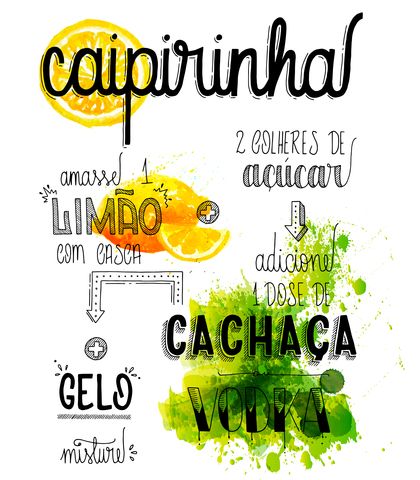 caipirinha
amasse 1
LIMÃO
COM CASCA
2 COLHERES DE
açúcar
adicione
1 DOSE DE
CACHAÇA
VODKA
GELO
misture